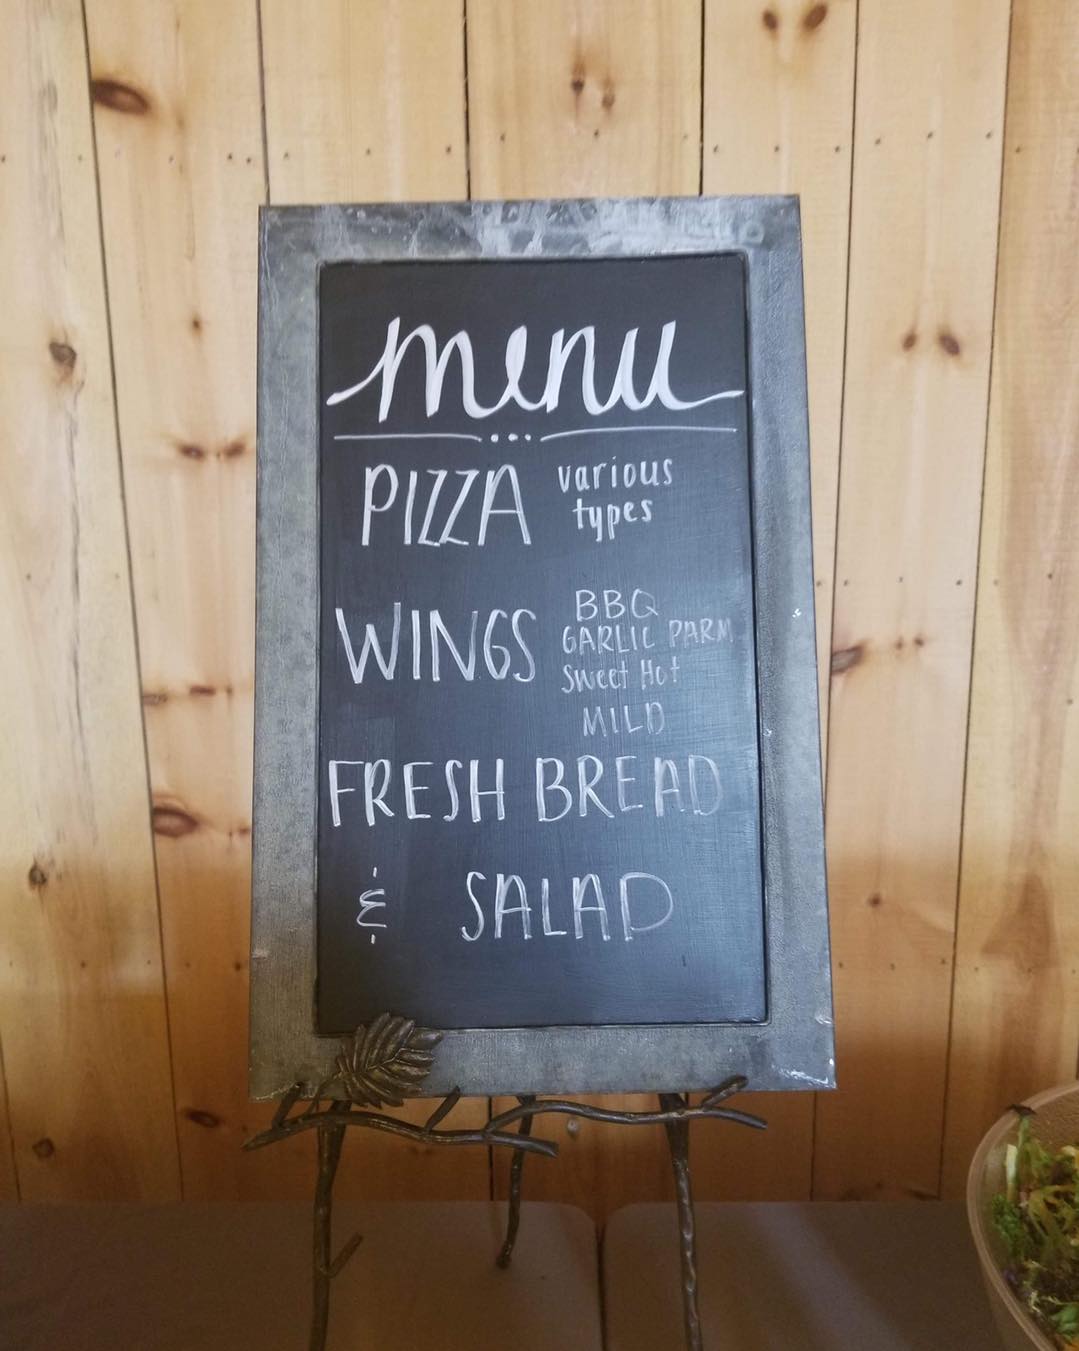 menu
PIZZA various
types
WINGS BBQ
GARLIC PARM
Sweet Hot
MILD
FRESH BREAD
& SALAD